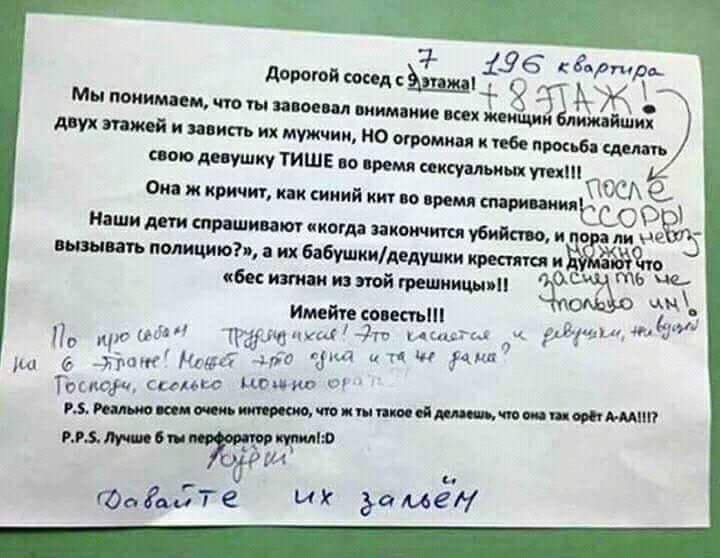 7 196 квартира
Дорогой сосед с 9 этажа!
+ 8 ЭТАЖ!
Мы понимаем, что ты завоевал внимание всех женщин ближайших
двух этажей и зависть их мужчин, НО огромная к тебе просьба сделать
свою девушку ТИШЕ во время сексуальных утех!!!
Она ж кричит, как синий кит во время спаривания!
ПОСЛЕ
ССОРЫ
НЕВОЗ-
МОЖНО
заснуть не
только им!
Наши дети спрашивают «когда закончится убийство, и пора ли
вызывать полицию?», а их бабушки/дедушки крестятся и думают что
«бес изгнан из этой грешницы»!!
Имейте совесть!!!
По просьбам трудящихся! Это касается и девушки, живущей
на 6 этаже! Может это одна и та же дама?
Господи, сколько можно
P.S. Реально всем очень интересно, что ж ты такое ей делаешь, что она так орёт А-АА!!!?
P.P.S. Лучше б ты перфоратор купил!:D
Давайте их зальём